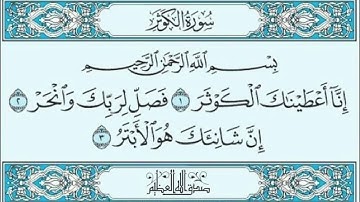 سُورَةُ الْكَوْثَرِ
بِسْمِ اللَّهِ الرَّحْمَٰنِ الرَّحِيمِ
إِنَّا أَعْطَيْنَاكَ الْكَوْثَرَ ١ فَصَلِّ لِرَبِّكَ وَانْحَرْ ٢
إِنَّ شَانِئَكَ هُوَ الْأَبْتَرُ ٣
صدق الله العظيم